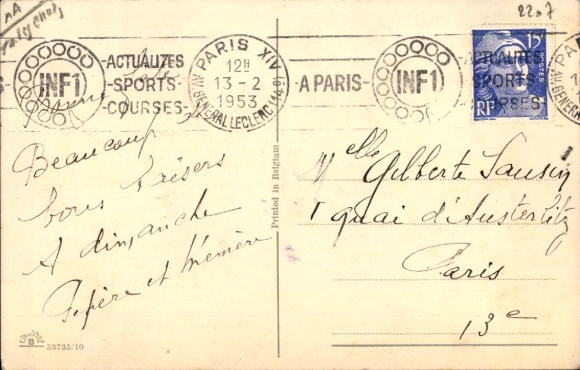 AA
2207
INF1
-ACTUALITES
-SPORTS-
-COURSES-
PARIS XIV
12H
13-2
1953
AV. GENERAL LECLERC (14e)
A PARIS-
INF1
ACTUALITES
SPORTS
COURSES-
15F
POSTES
RF
Beaucoup
bons baisers
A dimanche
Pepère et Mémère
Printed in Belgium
Melle Gilberte Sausin
1 quai d'Austerlitz
Paris
13e
53735/10